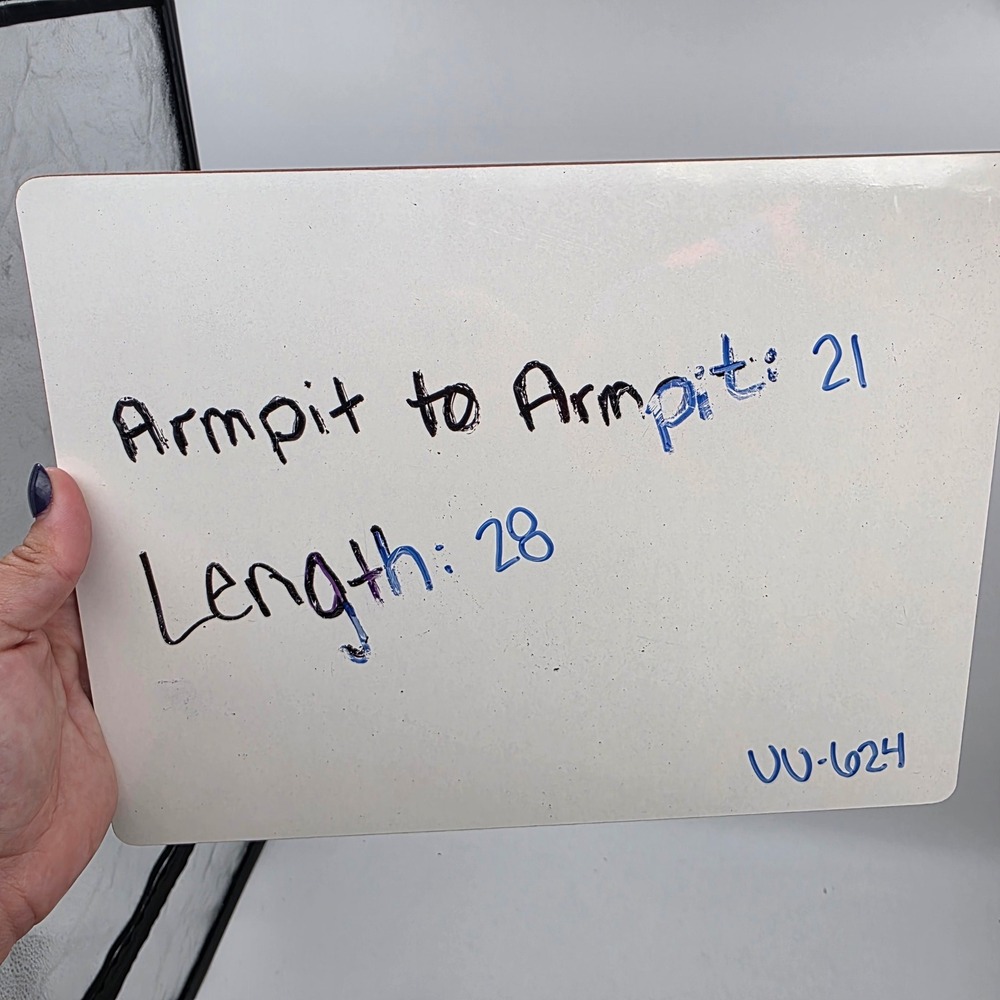 Armpit to Armpit: 21
Length: 28
UU-624